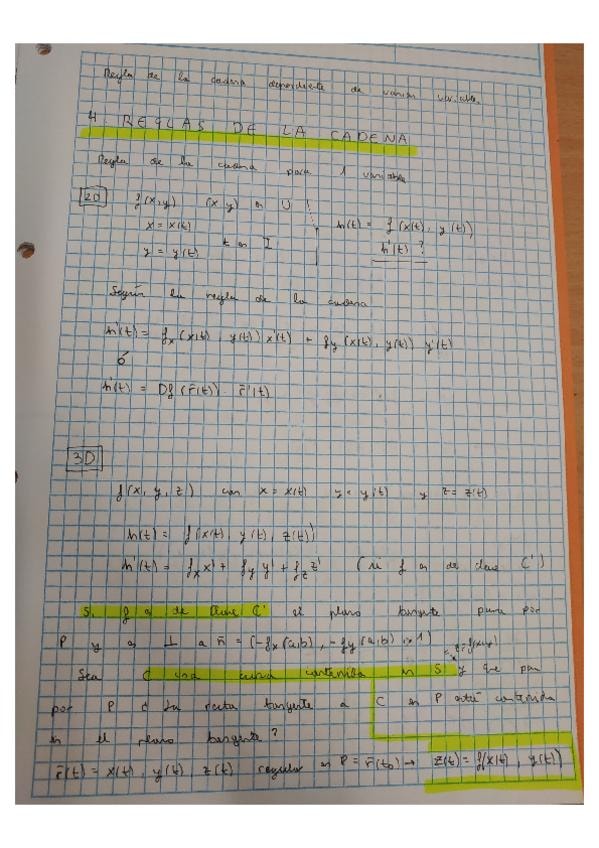 Regla de la cadena dependiente de varias variables.
4 REGLAS DE LA CADENA
Regla de la cadena para 1 variable
2D f(x,y) (x y) en U
x = x(t)
y = y(t) t en I
h(t) = f(x(t), y(t))
h'(t) ?
Según la regla de la cadena
h'(t) = fx (x(t), y(t)) x'(t) + fy (x(t), y(t)) y'(t)
ó
h'(t) = Df(r̄(t)) · r̄'(t)
3D
f(x, y, z) con x = x(t) y = y(t) y z = z(t)
h(t) = f(x(t), y(t), z(t))
h'(t) = fx x' + fy y' + fz z' (si f es de clase C')
Si f es de clase C' el plano tangente pasa por
P y es ⊥ a n̄ = (-fx(a,b), -fy(a,b), 1)
z = f(x,y)
Sea C una curva contenida en S y que pasa
por P ¿ la recta tangente a C en P está contenida
en el plano tangente?
r̄(t) = x(t), y(t), z(t) regular en P = r̄(t₀) → z(t) = f(x(t), y(t))